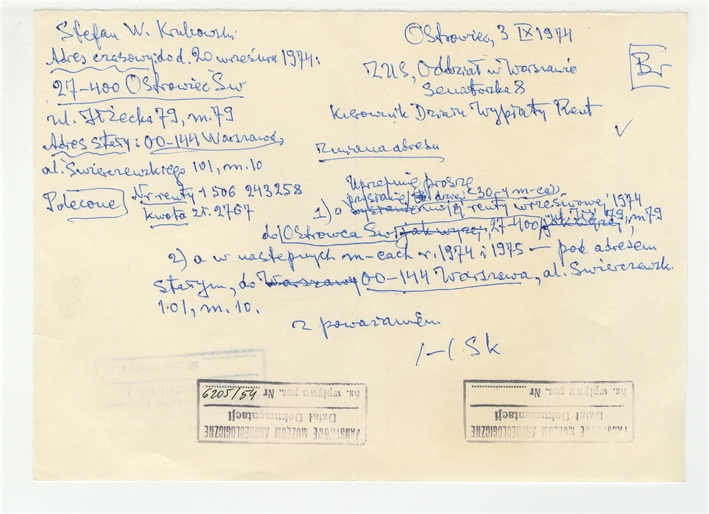 Stefan W. Krukowski
Adres czasowy: do d. 20 września 1974:
27-400 Ostrowiec Św
ul. Iłżecka 79, m. 79
Adres stały: 00-144 Warszawa,
al. Świerczewskiego 101, m. 10
Polecone
Nr renty 1506 243258
Kwota zł. 2767
Ostrowiec, 3 IX 1974
ZUS, Oddział w Warszawie
Senatorska 8
Kierownik Działu Wypłaty Rent
Br
Zmiana adresu
Uprzejmie proszę
1) o przysłanie renty wrześniowej 1974
do Ostrowca Św. jak wyżej, 27-400, 79, m. 79
2) a w następnych m-cach r. 1974 i 1975 — pod adresem
stałym, do Warszawy 00-144 Warszawa, al. Świerczewsk.
101, m. 10.
z poważaniem
/-/ Sk
PAŃSTWOWE MUZEUM ARCHEOLOGICZNE
Dział Dokumentacji
Ks. wpływu poz. Nr 6205/54
PAŃSTWOWE MUZEUM ARCHEOLOGICZNE
Dział Dokumentacji
Ks. wpływu poz. Nr